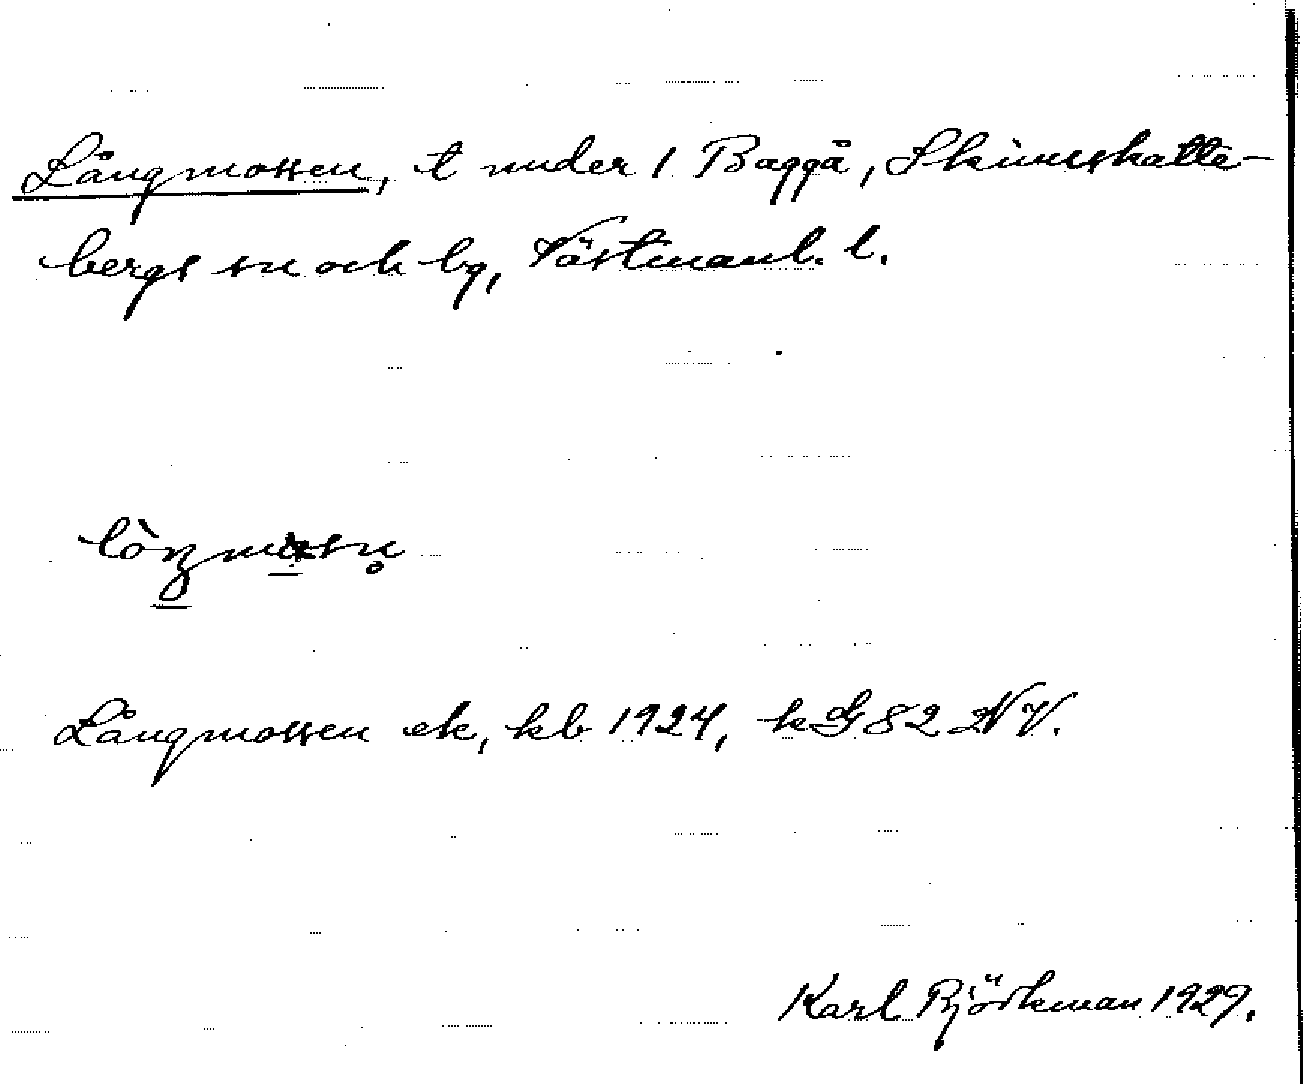 Långmossen, t under 1 Baggå, Skinnskatte-
bergs sn och bg, Västmanl. l.
Långmossen ek, kb 1924, k G 82 NV.
Karl Björkman 1929.